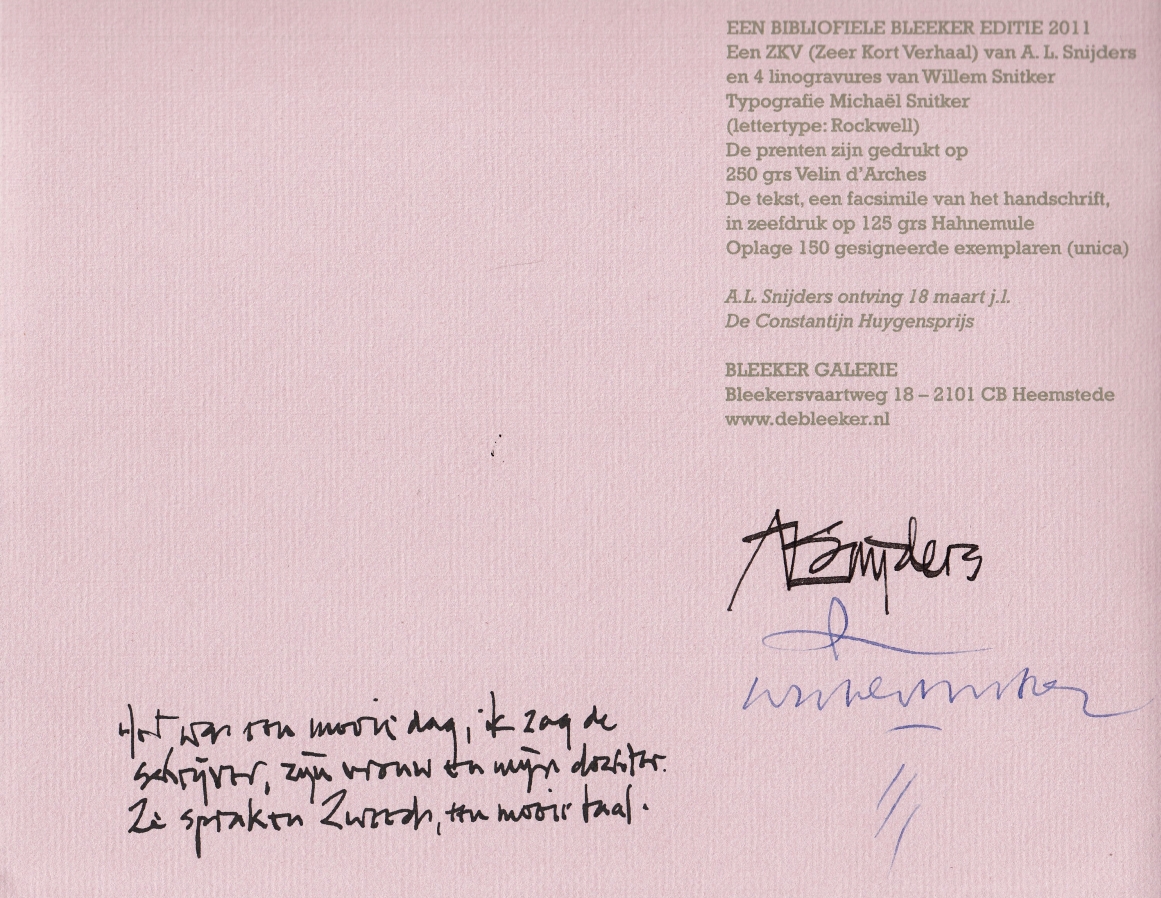 EEN BIBLIOFIELE BLEEKER EDITIE 2011
Een ZKV (Zeer Kort Verhaal) van A. L. Snijders
en 4 linogravures van Willem Snitker
Typografie Michaël Snitker
(lettertype: Rockwell)
De prenten zijn gedrukt op
250 grs Velin d’Arches
De tekst, een facsimile van het handschrift,
in zeefdruk op 125 grs Hahnemule
Oplage 150 gesigneerde exemplaren (unica)
A.L. Snijders ontving 18 maart j.l.
De Constantijn Huygensprijs
BLEEKER GALERIE
Bleekersvaartweg 18 – 2101 CB Heemstede
www.debleeker.nl
AL Snijders
Willem Snitker
Het was een mooie dag, ik zag de
schrijver, zijn vrouw en mijn dochter.
Ze spraken Zweeds, een mooie taal.